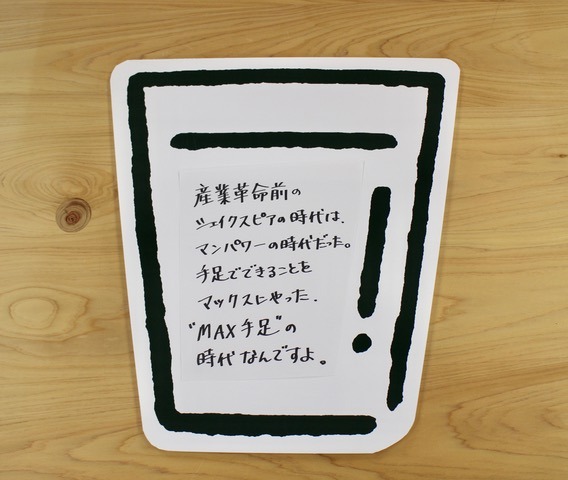 産業革命前の
シェイクスピアの時代は、
マンパワーの時代だった。
手足でできることを
マックスにやった、
"MAX手足"の
時代なんですよ。